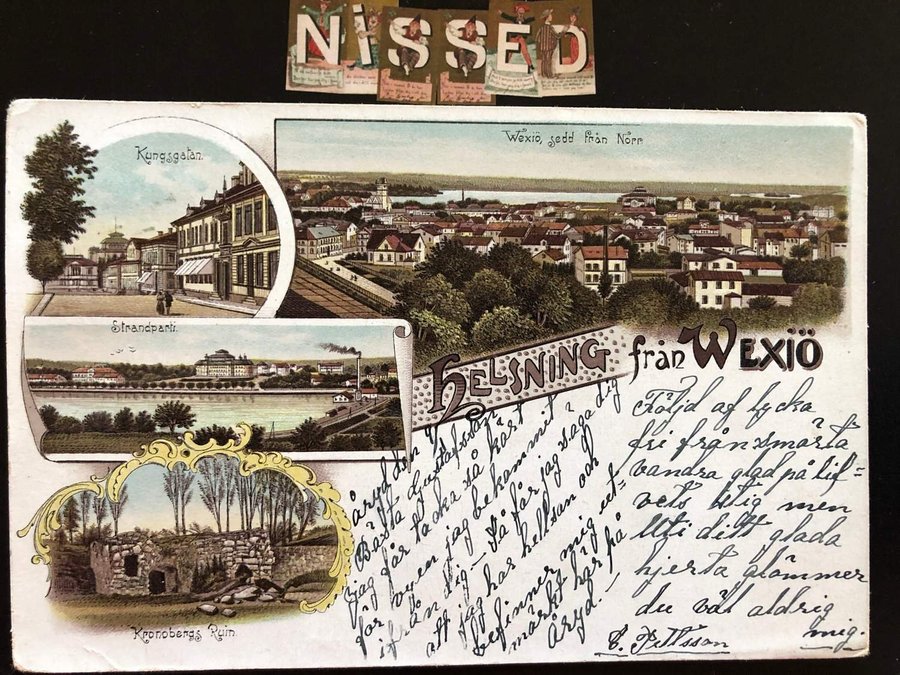 NISSED
Kungsgatan.
Wexiö, sedd från Norr.
Strandparti.
HELSNING från WEXIÖ
Kronobergs Ruin.
Åryd den
Bästa Gustafsson
jag får tacka så kärt
för vyen jag bekommit
ifrån dig – Så får jag saga dig
att jag har hellsan och
befinner mig ut-
märkt här på
Åryd. –
Följd af lycka
fri från smärta
vandra glad på lif-
vets stig men
Uti ditt glada
hjerta glömmer
du väl aldrig
mig.
C. Pettsson